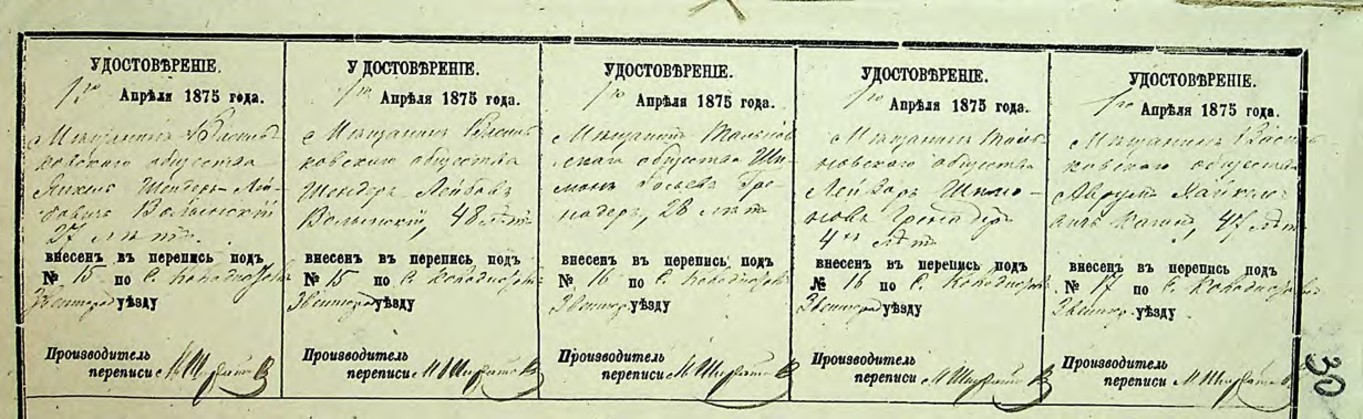 УДОСТОВѢРЕНІЕ.
1го Апрѣля 1875 года.
Мѣщанинъ Василь-
ковскаго общества
Янкель Шендеръ-Лей-
бовичъ Волынскій
27 лѣтъ.
внесенъ въ перепись подъ
№ 15 по С.
Звениг. уѣзду
Производитель
переписи М.
УДОСТОВѢРЕНІЕ.
1го Апрѣля 1875 года.
Мѣщанинъ Василь-
ковскаго общества
Шендеръ Лейбовъ
Волынскій, 48 лѣтъ
внесенъ въ перепись подъ
№ 15 по С.
Звениг. уѣзду
Производитель
переписи М.
УДОСТОВѢРЕНІЕ.
1го Апрѣля 1875 года.
Мѣщанинъ Тальнов-
скаго общества Ши-
монъ Іосьевъ Гре-
надеръ, 28 лѣтъ
внесенъ въ перепись подъ
№ 16 по С.
Звениг. уѣзду
Производитель
переписи М.
УДОСТОВѢРЕНІЕ.
1го Апрѣля 1875 года.
Мѣщанинъ Таль-
новскаго общества
Лейзаръ Шимо-
новъ Гренадеръ
4хъ лѣтъ
внесенъ въ перепись подъ
№ 16 по С.
Звениг. уѣзду
Производитель
переписи М.
УДОСТОВѢРЕНІЕ.
1го Апрѣля 1875 года.
Мѣщанинъ Василь-
ковскаго общества
Аврумъ Хайкел-
Каганъ, 47 лѣтъ
внесенъ въ перепись подъ
№ 17 по С.
Звениг. уѣзду
Производитель
переписи М.
30